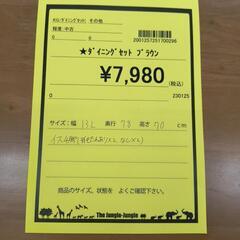 KG/ダイニングセット/ その他
程度 中古
2001257251700296
★ダイニングセット ブラウン
¥7,980 (税込)
0
230125
サイズ: 幅 132 奥行 78 高さ 70 cm
イス4脚
商品のサイズ、状態を よくご確認下さい。
The Jungle-Jungle